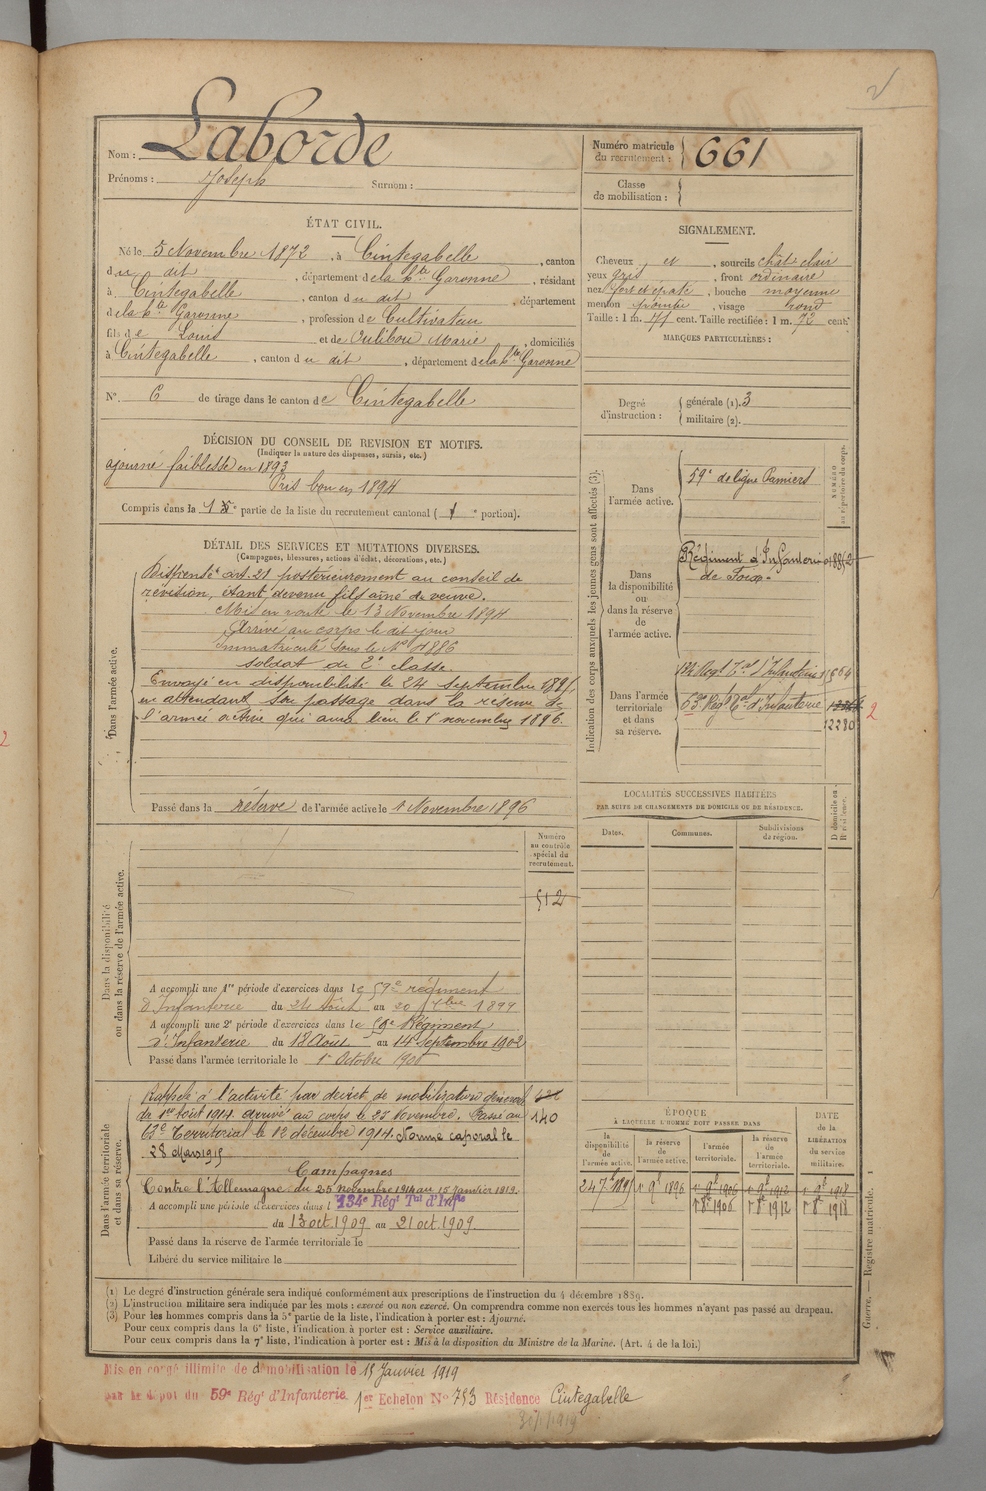 Nom : Laborde
Prénoms : Joseph Surnom :
Numéro matricule du recrutement : 661
Classe de mobilisation :
ÉTAT CIVIL.
Né le 5 Novembre 1872, à Cintegabelle, canton
du dit, département de la hte Garonne, résidant
à Cintegabelle, canton du dit, département
de la hte Garonne, profession de Cultivateur
fils de Louis et de Marie, domiciliés
à Cintegabelle, canton du dit, département de la hte Garonne
No. 6 de tirage dans le canton de Cintegabelle
SIGNALEMENT.
Cheveux et, sourcils chât clair
yeux gris, front ordinaire
nez fort et épaté, bouche moyenne
menton pointu, visage rond
Taille : 1 m. 71 cent. Taille rectifiée : 1 m. 72 cent.
MARQUES PARTICULIÈRES :
Degré d'instruction : générale (1). 3
militaire (2).
DÉCISION DU CONSEIL DE REVISION ET MOTIFS.
(Indiquer la nature des dispenses, sursis, etc.)
ajourné faiblesse en 1893
Pris bon en 1894
Compris dans la 1e partie de la liste du recrutement cantonal ( 1 e portion).
DÉTAIL DES SERVICES ET MUTATIONS DIVERSES.
(Campagnes, blessures, actions d'éclat, décorations, etc.)
Dans l'armée active.
Dispensé art. 21 postérieurement au conseil de
révision, étant devenu fils aîné de veuve.
Mis en route le 13 Novembre 1894
Arrivé au corps le dit jour
Immatriculé sous le No 1886
soldat de 2e classe.
Envoyé en disponibilité le 24 septembre 1895
en attendant son passage dans la réserve de
l'armée active qui aura lieu le 1er novembre 1896.
Passé dans la réserve de l'armée active le 1er Novembre 1896
Indication des corps auxquels les jeunes gens sont affectés (3).
NUMÉRO au répertoire du corps.
Dans l'armée active.
59e de ligne Pamiers
Dans la disponibilité ou dans la réserve de l'armée active.
Régiment d'Infanterie
de Foix.
Dans l'armée territoriale et dans sa réserve.
134 Régt Tal d'Infanterie
63e Régt Tal d'Infanterie
12280
2
LOCALITÉS SUCCESSIVES HABITÉES
PAR SUITE DE CHANGEMENTS DE DOMICILE OU DE RÉSIDENCE.
Dates. Communes. Subdivisions de région. D domicile ou R résidence.
Numéro au contrôle spécial du recrutement.
512
Dans la disponibilité ou dans la réserve de l'armée active.
A accompli une 1re période d'exercices dans le 59e régiment
d'Infanterie du 24 Août au 20 7bre 1899
A accompli une 2e période d'exercices dans le 59e Régiment
d'Infanterie du 18 Août au 14 Septembre 1902
Passé dans l'armée territoriale le 1er Octobre 1906
Dans l'armée territoriale et dans sa réserve.
Rappelé à l'activité par décret de mobilisation général
du 1er Août 1914. arrivé au corps le 25 Novembre. Passé au
63e Territorial le 12 décembre 1914. Nommé caporal le
28 Mars 1915
140
Campagnes
Contre l'Allemagne du 25 novembre 1914 au 15 Janvier 1919.
A accompli une période d'exercices dans l 134e Régt Tal d'Infie
du 13 oct. 1909 au 21 oct. 1909.
Passé dans la réserve de l'armée territoriale le
Libéré du service militaire le
ÉPOQUE
À LAQUELLE L'HOMME DOIT PASSER DANS
la disponibilité de l'armée active. la réserve de l'armée active. l'armée territoriale. la réserve de l'armée territoriale. DATE de la LIBÉRATION du service militaire.
24 7e 1895 1er 9e 1896 1er 9e 1906 1er 9e 1912 1er 9e 1918
1er 8e 1906 1er 8e 1912 1er 8e 1918
(1) Le degré d'instruction générale sera indiqué conformément aux prescriptions de l'instruction du 4 décembre 1889.
(2) L'instruction militaire sera indiquée par les mots : exercé ou non exercé. On comprendra comme non exercés tous les hommes n'ayant pas passé au drapeau.
(3) Pour les hommes compris dans la 5e partie de la liste, l'indication à porter est : Ajourné.
Pour ceux compris dans la 6e liste, l'indication à porter est : Service auxiliaire.
Pour ceux compris dans la 7e liste, l'indication à porter est : Mis à la disposition du Ministre de la Marine. (Art. 4 de la loi.)
Guerre. — Registre matricule. 1
Mis en congé illimité de démobilisation le 15 Janvier 1919
par le dépôt du 59e Régt d'Infanterie 1er Echelon No 753 Résidence Cintegabelle